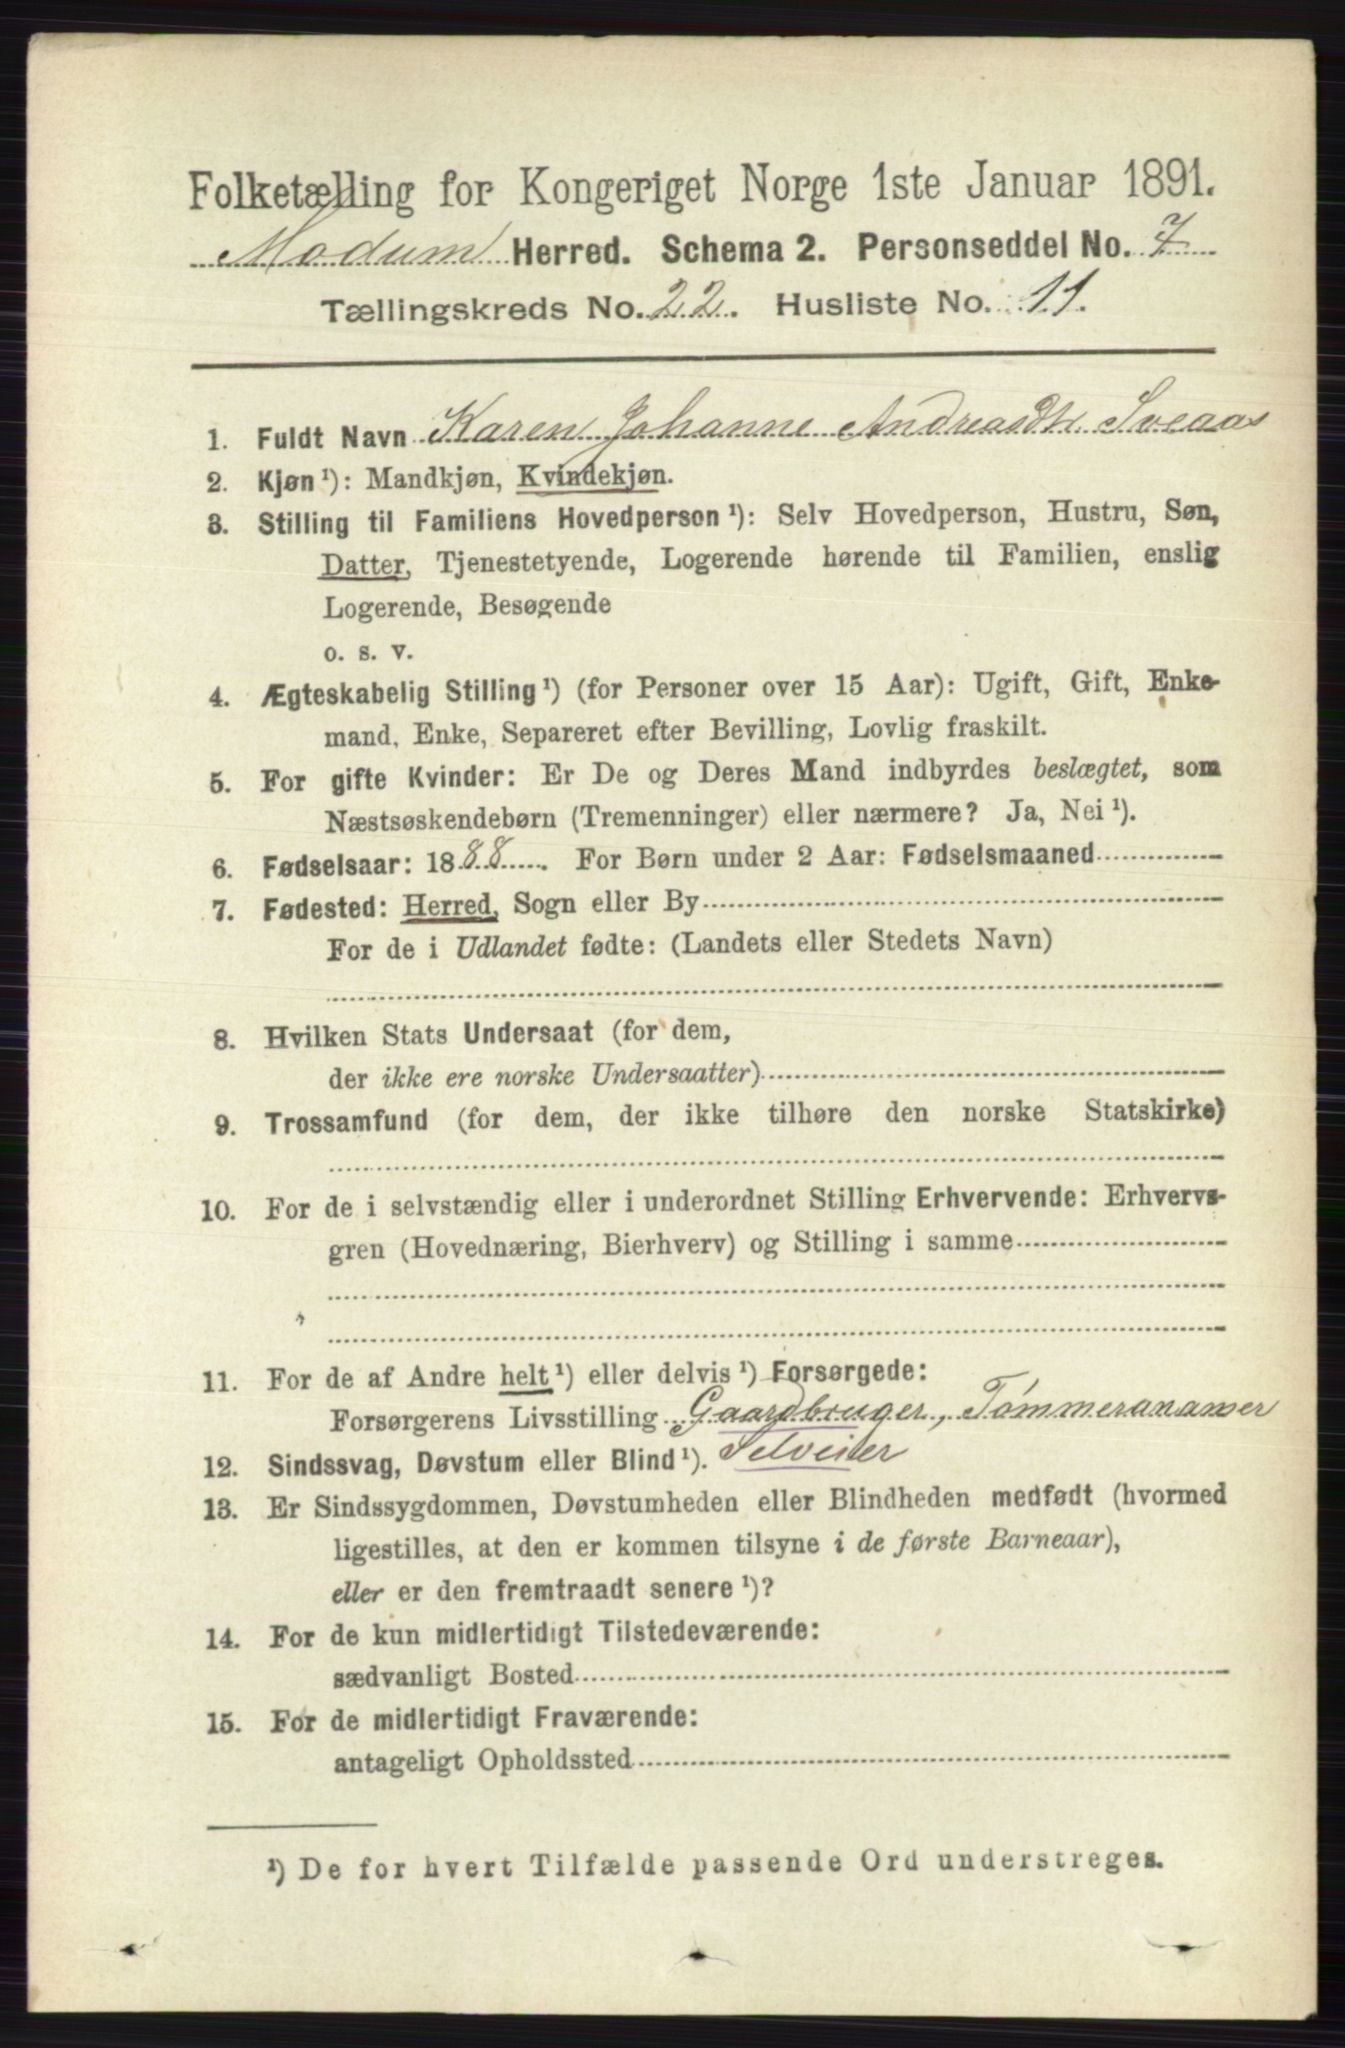 Folketælling for Kongeriget Norge 1ste Januar 1891.
Modum Herred. Schema 2. Personseddel No. 7
Tællingskreds No. 22. Husliste No. 11.
1. Fuldt Navn Karen Johanne Andreasdtr. Sveaas
2. Kjøn ¹): Mandkjøn, Kvindekjøn.
3. Stilling til Familiens Hovedperson ¹): Selv Hovedperson, Hustru, Søn,
Datter, Tjenestetyende, Logerende hørende til Familien, enslig
Logerende, Besøgende
o. s. v.
4. Ægteskabelig Stilling ¹) (for Personer over 15 Aar): Ugift, Gift, Enke-
mand, Enke, Separeret efter Bevilling, Lovlig fraskilt.
5. For gifte Kvinder: Er De og Deres Mand indbyrdes beslægtet, som
Næstsøskendebørn (Tremenninger) eller nærmere? Ja, Nei ¹).
6. Fødselsaar: 1888. For Børn under 2 Aar: Fødselsmaaned
7. Fødested: Herred, Sogn eller By
For de i Udlandet fødte: (Landets eller Stedets Navn)
8. Hvilken Stats Undersaat (for dem,
der ikke ere norske Undersaatter)
9. Trossamfund (for dem, der ikke tilhøre den norske Statskirke)
10. For de i selvstændig eller i underordnet Stilling Erhvervende: Erhvervs-
gren (Hovednæring, Bierhverv) og Stilling i samme
11. For de af Andre helt ¹) eller delvis ¹) Forsørgede:
Forsørgerens Livsstilling Gaardbruger, Tømmerananmer
12. Sindssvag, Døvstum eller Blind ¹). Selveier
13. Er Sindssygdommen, Døvstumheden eller Blindheden medfødt (hvormed
ligestilles, at den er kommen tilsyne i de første Barneaar),
eller er den fremtraadt senere ¹)?
14. For de kun midlertidigt Tilstedeværende:
sædvanligt Bosted
15. For de midlertidigt Fraværende:
antageligt Opholdssted
¹) De for hvert Tilfælde passende Ord understreges.